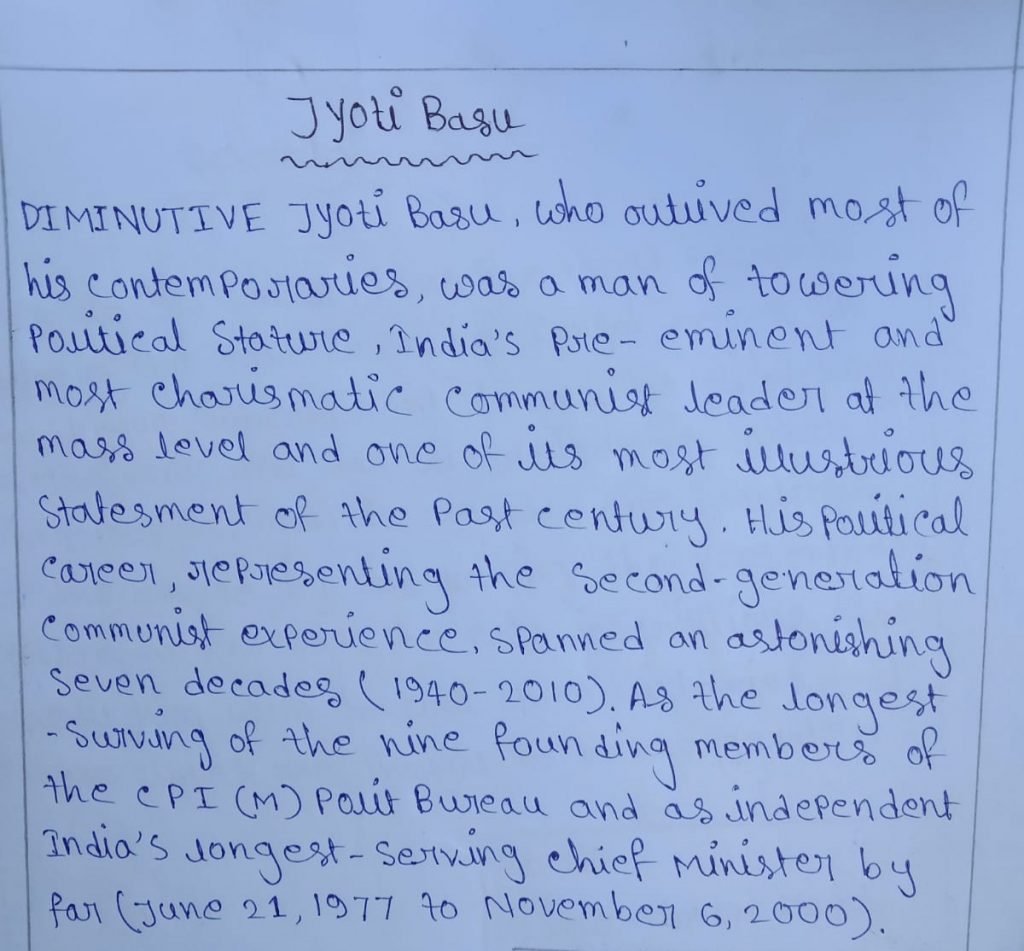 Jyoti Basu
DIMINUTIVE Jyoti Basu, who outlived most of
his contemporaries, was a man of towering
Political Stature, India's Pre-eminent and
most charismatic communist leader at the
mass level and one of its most illustrious
Statesment of the Past century. His Political
career, representing the Second-generation
Communist experience, spanned an astonishing
Seven decades (1940-2010). As the longest
-Surving of the nine founding members of
the CPI (M) Polit Bureau and as independent
India's longest-Serving chief Minister by
far (June 21, 1977 to November 6, 2000).